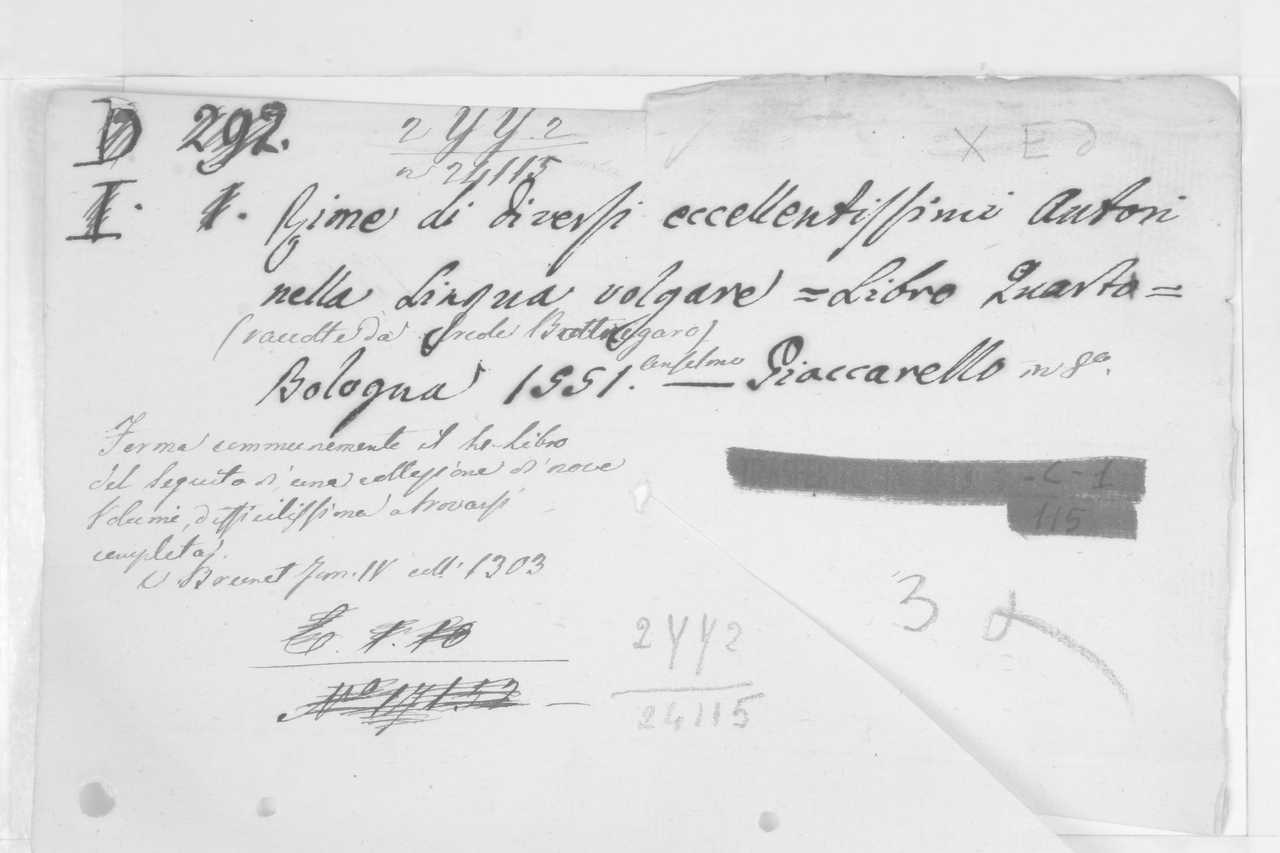 D 292.
2 Y Y 2
n 24115
X E
I. 1. Rime di diversi eccellentissimi Autori
nella Lingua volgare = Libro Quarto =
(raccolte da Ercole Bottrigaro)
Bologna 1551. Anselmo — Giaccarello in 8º.
Forma communemente il Libro
del seguito di una collezione di nove
Volumi, difficilissima a trovarsi
completa.
V Brunet Tom. IV coll. 1303
C-1
115
3
E. 1. 10
Nº 17152 —
2 Y Y 2
24115